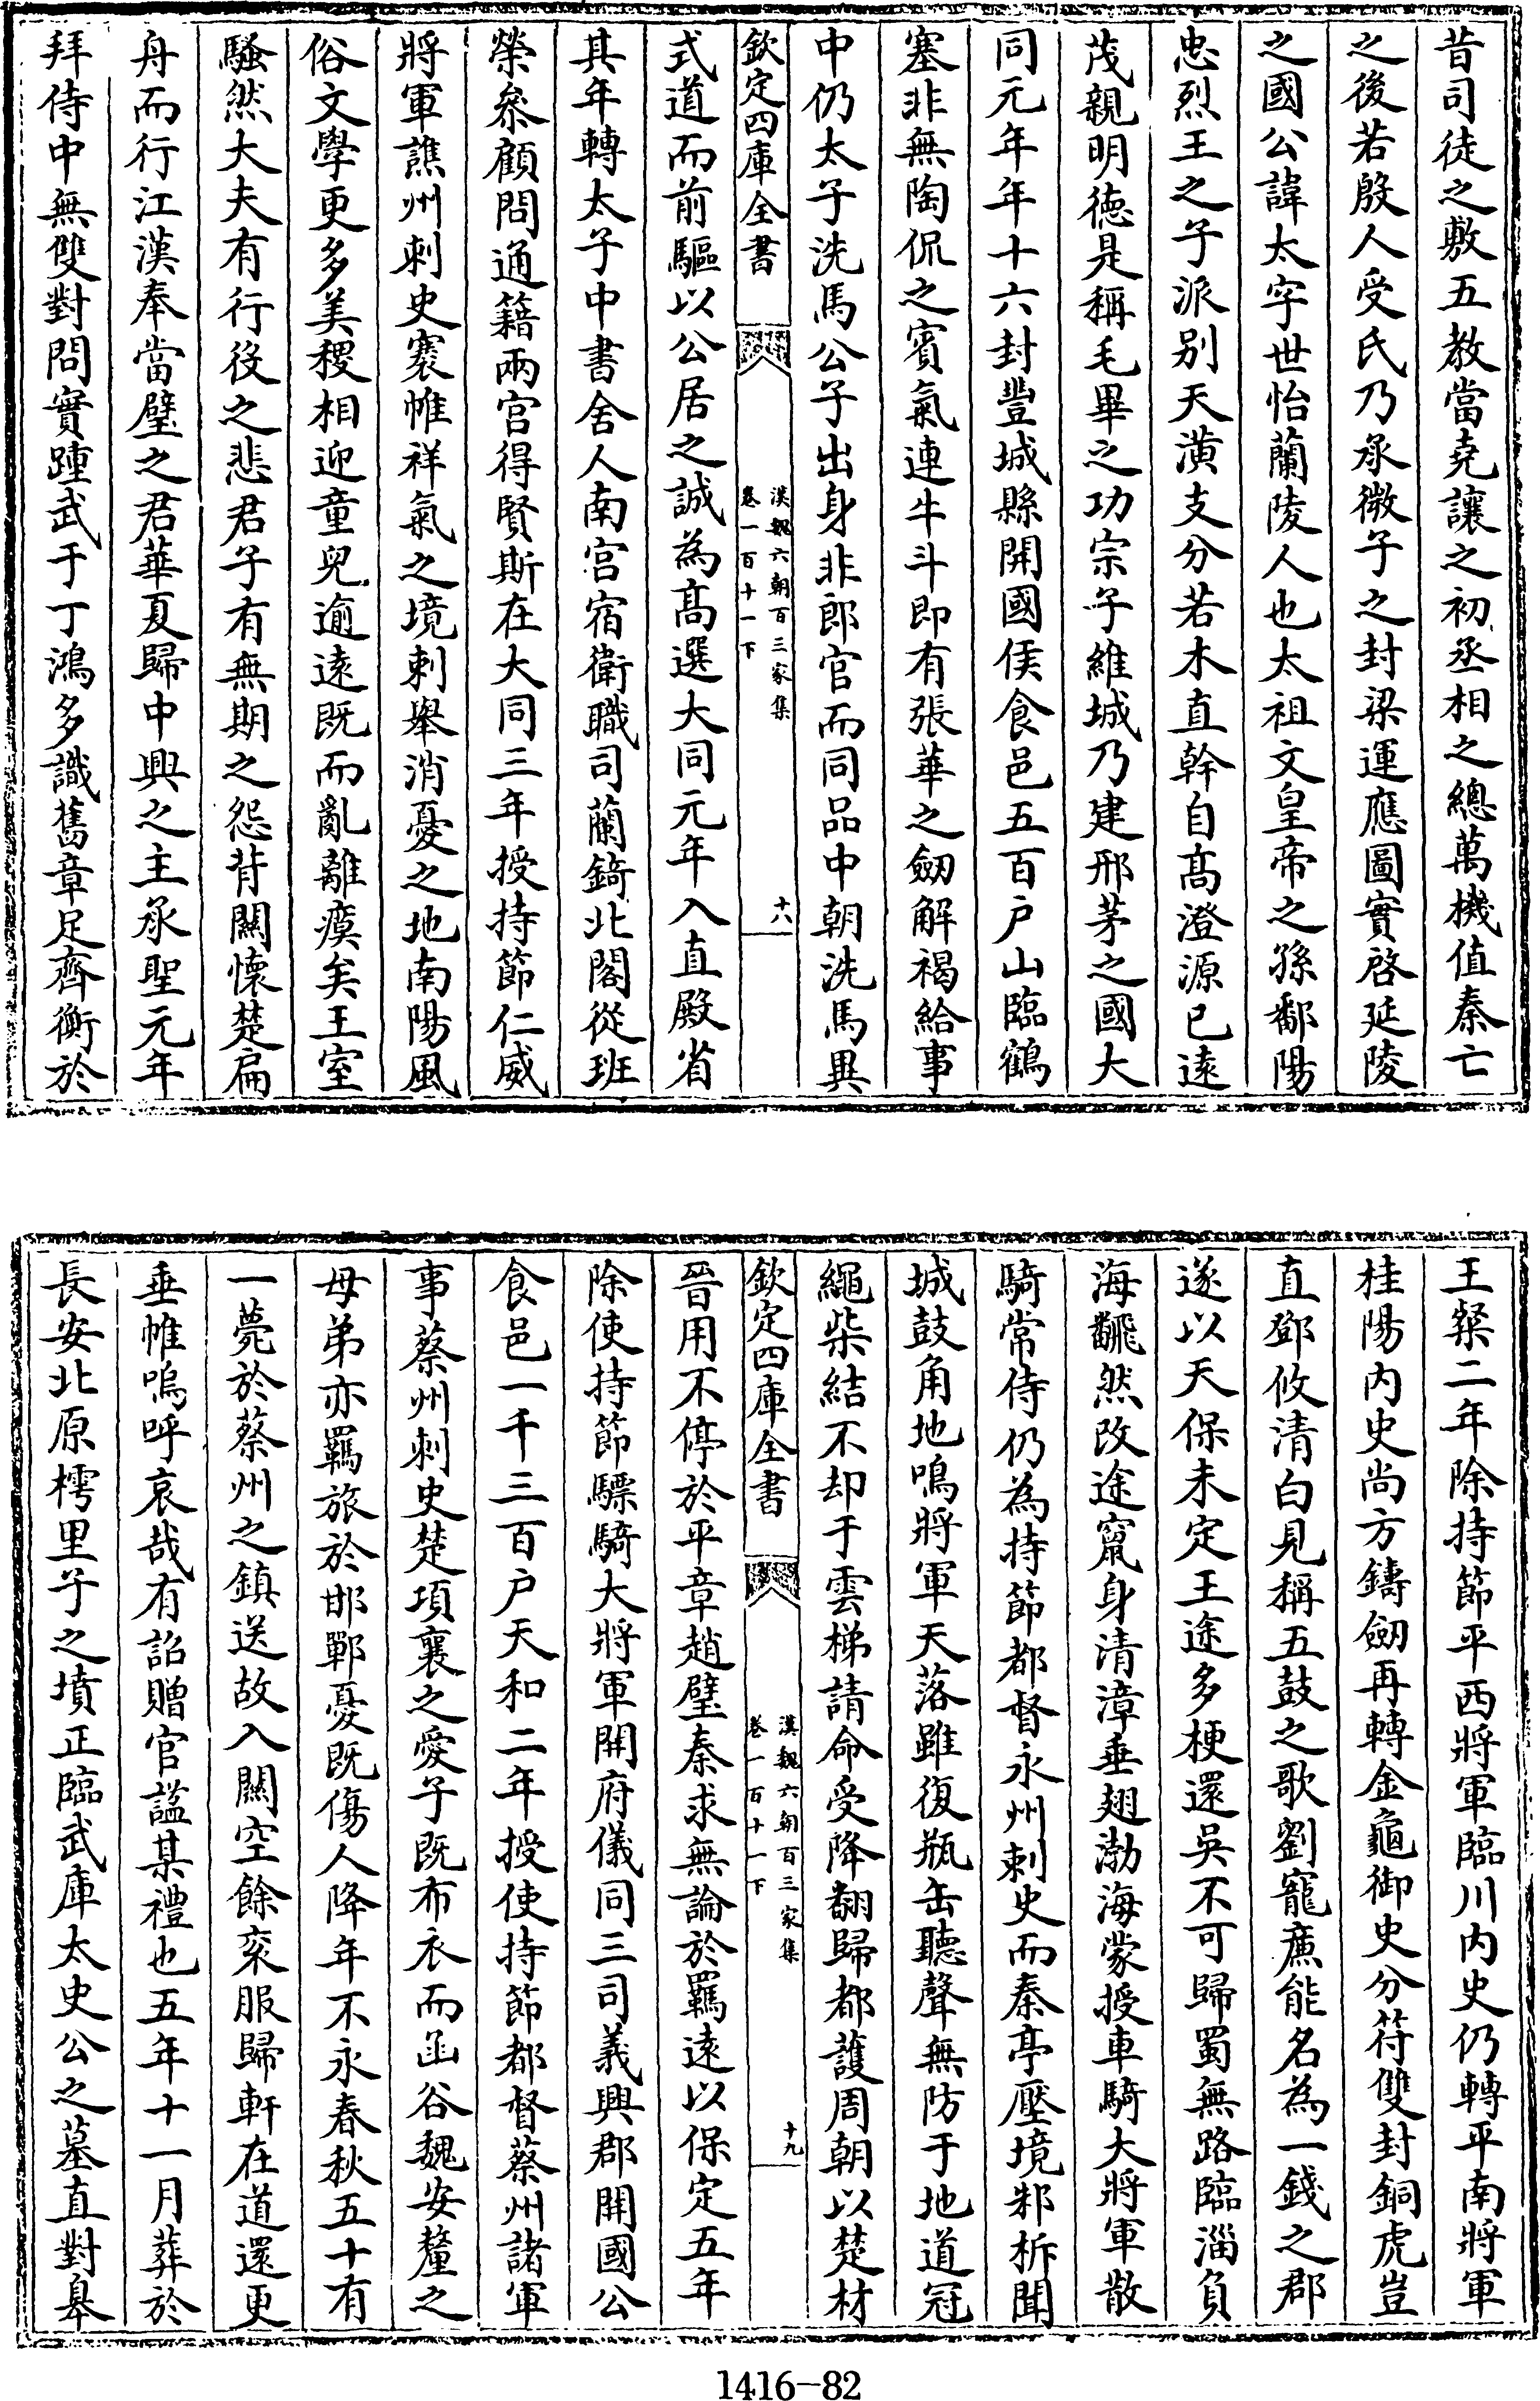 昔司徒之敷五教當堯讓之初丞相之總萬機值秦亡
之後若殷人受氏乃承微子之封梁運應圖實啓延陵
之國公諱太字世怡蘭陵人也太祖文皇帝之孫鄱陽
忠烈王之子派别天潢支分若木直幹自髙澄源已遠
茂親明德是稱毛畢之功宗子維城乃建邢茅之國大
同元年年十六封豐城縣開國侯食邑五百户山臨鶴
塞非無陶侃之賓氣連牛斗即有張華之劒解褐給事
中仍太子洗馬公子出身非郎官而同品中朝洗馬異
欽定四庫全書
漢魏六朝百三家集
卷一百十一下
十八
式道而前驅以公居之誠為髙選大同元年入直殿省
其年轉太子中書舍人南宫宿衛職司蘭錡北閣從班
榮叅顧問通籍兩宫得賢斯在大同三年授持節仁威
將軍譙州刺史褰帷祥氣之境刺舉消憂之地南陽風
俗文學更多美稷相迎童兒逾遠既而亂離瘼矣王室
騷然大夫有行役之悲君子有無期之怨背關懷楚扁
舟而行江漢奉當璧之君華夏歸中興之主承聖元年
拜侍中無雙對問實踵武于丁鴻多識舊章足齊衡於
王粲二年除持節平西將軍臨川内史仍轉平南將軍
桂陽内史尚方鑄劒再轉金龜御史分符雙封銅虎豈
直鄧攸清白見稱五鼓之歌劉寵㢘能名為一錢之郡
遂以天保未定王途多梗還吳不可歸蜀無路臨淄負
海飜然改途竄身清漳垂翅渤海蒙授車騎大將軍散
騎常侍仍為持節都督永州刺史而秦亭壓境邾柝聞
城鼓角地鳴將軍天落雖復瓶缶聽聲無防于地道冠
繩柴結不却于雲梯請命受降翻歸都護周朝以楚材
欽定四庫全書
漢魏六朝百三家集
卷一百十一下
十九
晉用不停於平章趙璧秦求無論於羈遠以保定五年
除使持節驃騎大將軍開府儀同三司義興郡開國公
食邑一千三百户天和二年授使持節都督蔡州諸軍
事蔡州刺史楚項襄之愛子既布衣而函谷魏安釐之
母弟亦羈旅於邯鄲憂既傷人降年不永春秋五十有
一薨於蔡州之鎮送故入關空餘衮服歸軒在道還更
垂帷嗚呼哀哉有詔贈官諡某禮也五年十一月葬於
長安北原樗里子之墳正臨武庫太史公之墓直對皋
1416-82